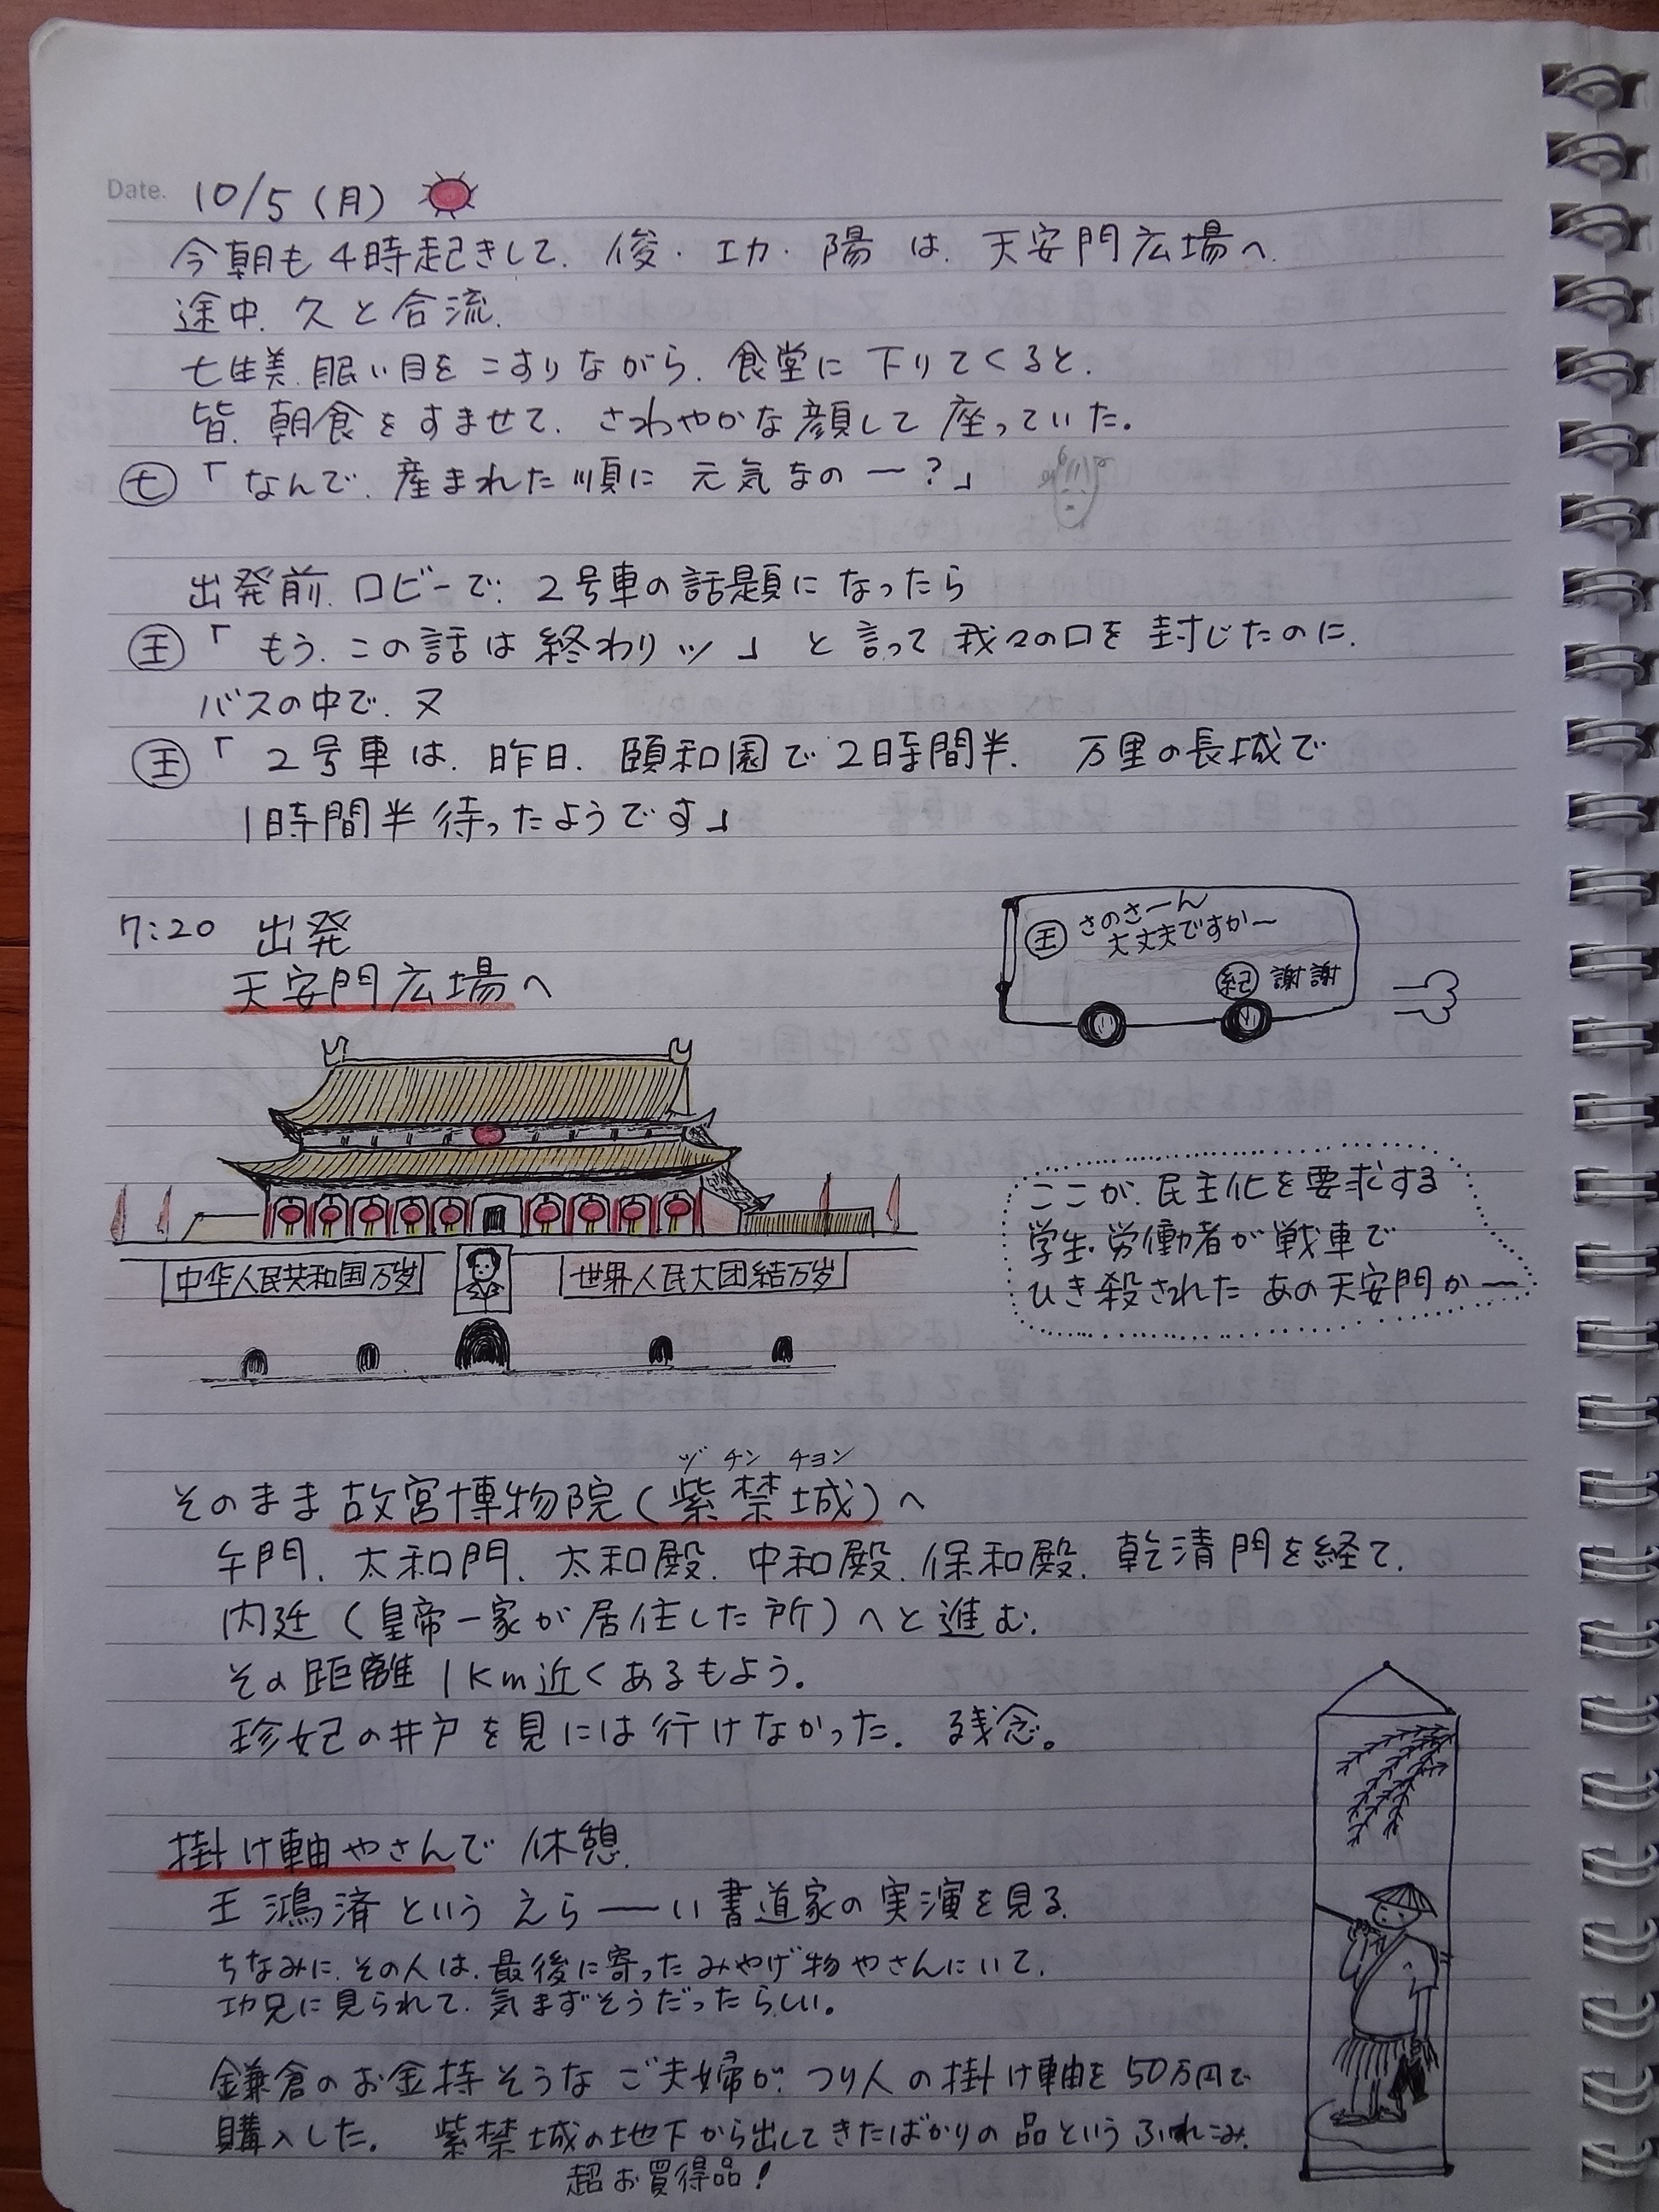 Date. 10/5 (月)
今朝も4時起きして、俊・功・陽 は、天安門広場へ
途中、久と合流。
七生美、眠い目をこすりながら、食堂に下りてくると、
皆、朝食をすませて、さわやかな顔して座っていた。
七「なんで、産まれた順に元気なのー?」
出発前、ロビーで、2号車の話題になったら
王「もう、この話は終わりッ」と言って我々の口を封じたのに、
バスの中で、又
王「2号車は、昨日、頤和園で2時間半、万里の長城で
1時間半待ったようです」
7:20 出発
天安門広場へ
王 さのさーん
大丈夫ですかー
紀 謝謝
中华人民共和国万岁
世界人民大团結万岁
ここが、民主化を要求する
学生、労働者が戦車で
ひき殺された あの天安門かー
ヅ チン チョン
そのまま故宮博物院(紫禁城)へ
午門、太和門、太和殿、中和殿、保和殿、乾清門を経て、
内廷(皇帝一家が居住した所)へと進む。
その距離 1Km近くあるもよう。
珍妃の井戸を見には行けなかった。残念。
掛け軸やさんで 休憩。
王鴻済という えらーーい書道家の実演を見る。
ちなみに、その人は、最後に寄ったみやげ物やさんにいて、
功兄に見られて、気まずそうだったらしい。
鎌倉のお金持そうなご夫婦が、つり人の掛け軸を50万円で
購入した。 紫禁城の地下から出してきたばかりの品というふれこみ。
超お買得品!